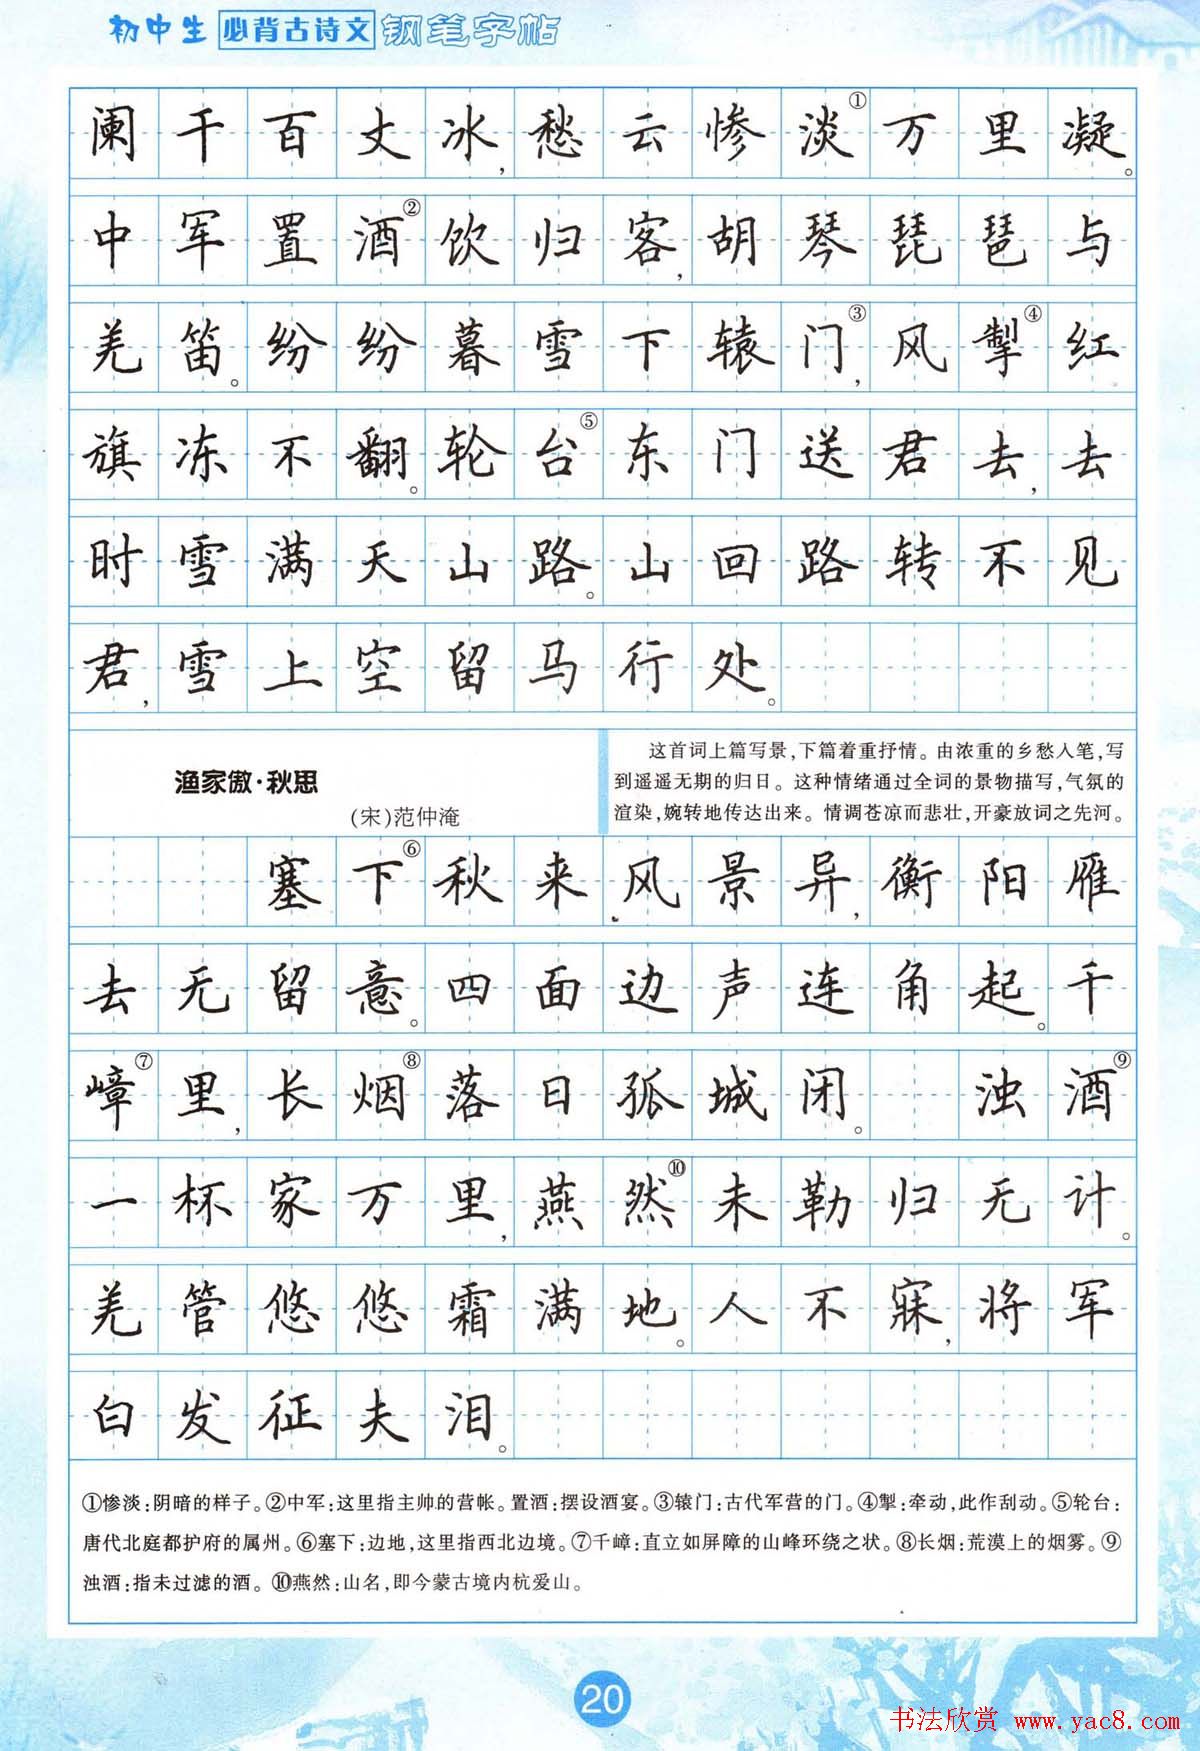 初中生 必背古诗文 钢笔字帖
阑干百丈冰,愁云惨淡①万里凝。
中军置酒②饮归客,胡琴琵琶与
羌笛。纷纷暮雪下辕门③,风掣④红
旗冻不翻。轮台⑤东门送君去,去
时雪满天山路。山回路转不见
君,雪上空留马行处。
渔家傲·秋思
(宋)范仲淹
这首词上篇写景,下篇着重抒情。由浓重的乡愁入笔,写
到遥遥无期的归日。这种情绪通过全词的景物描写,气氛的
渲染,婉转地传达出来。情调苍凉而悲壮,开豪放词之先河。
塞下⑥秋来风景异,衡阳雁
去无留意。四面边声连角起。千
嶂⑦里,长烟⑧落日孤城闭。 浊酒⑨
一杯家万里,燕然⑩未勒归无计。
羌管悠悠霜满地。人不寐,将军
白发征夫泪。
①惨淡:阴暗的样子。②中军:这里指主帅的营帐。置酒:摆设酒宴。③辕门:古代军营的门。④掣:牵动,此作刮动。⑤轮台:
唐代北庭都护府的属州。⑥塞下:边地,这里指西北边境。⑦千嶂:直立如屏障的山峰环绕之状。⑧长烟:荒漠上的烟雾。⑨
浊酒:指未过滤的酒。⑩燕然:山名,即今蒙古境内杭爱山。
20
书法欣赏 www.yac8.com